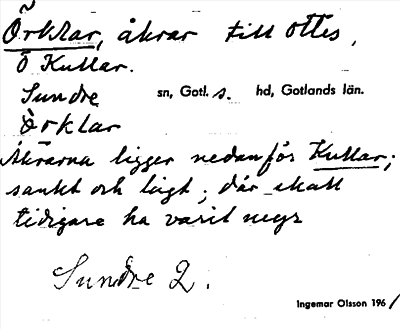 Örklar, åkrar till Ottes,
Ö Kullar.
Sundre sn, Gotl. s. hd, Gotlands län.
Örklar
Åkrarna ligger nedanför Kullar;
sankt och lågt; där skall
tidigare ha varit myr
Sundre 2.
Ingemar Olsson 1961